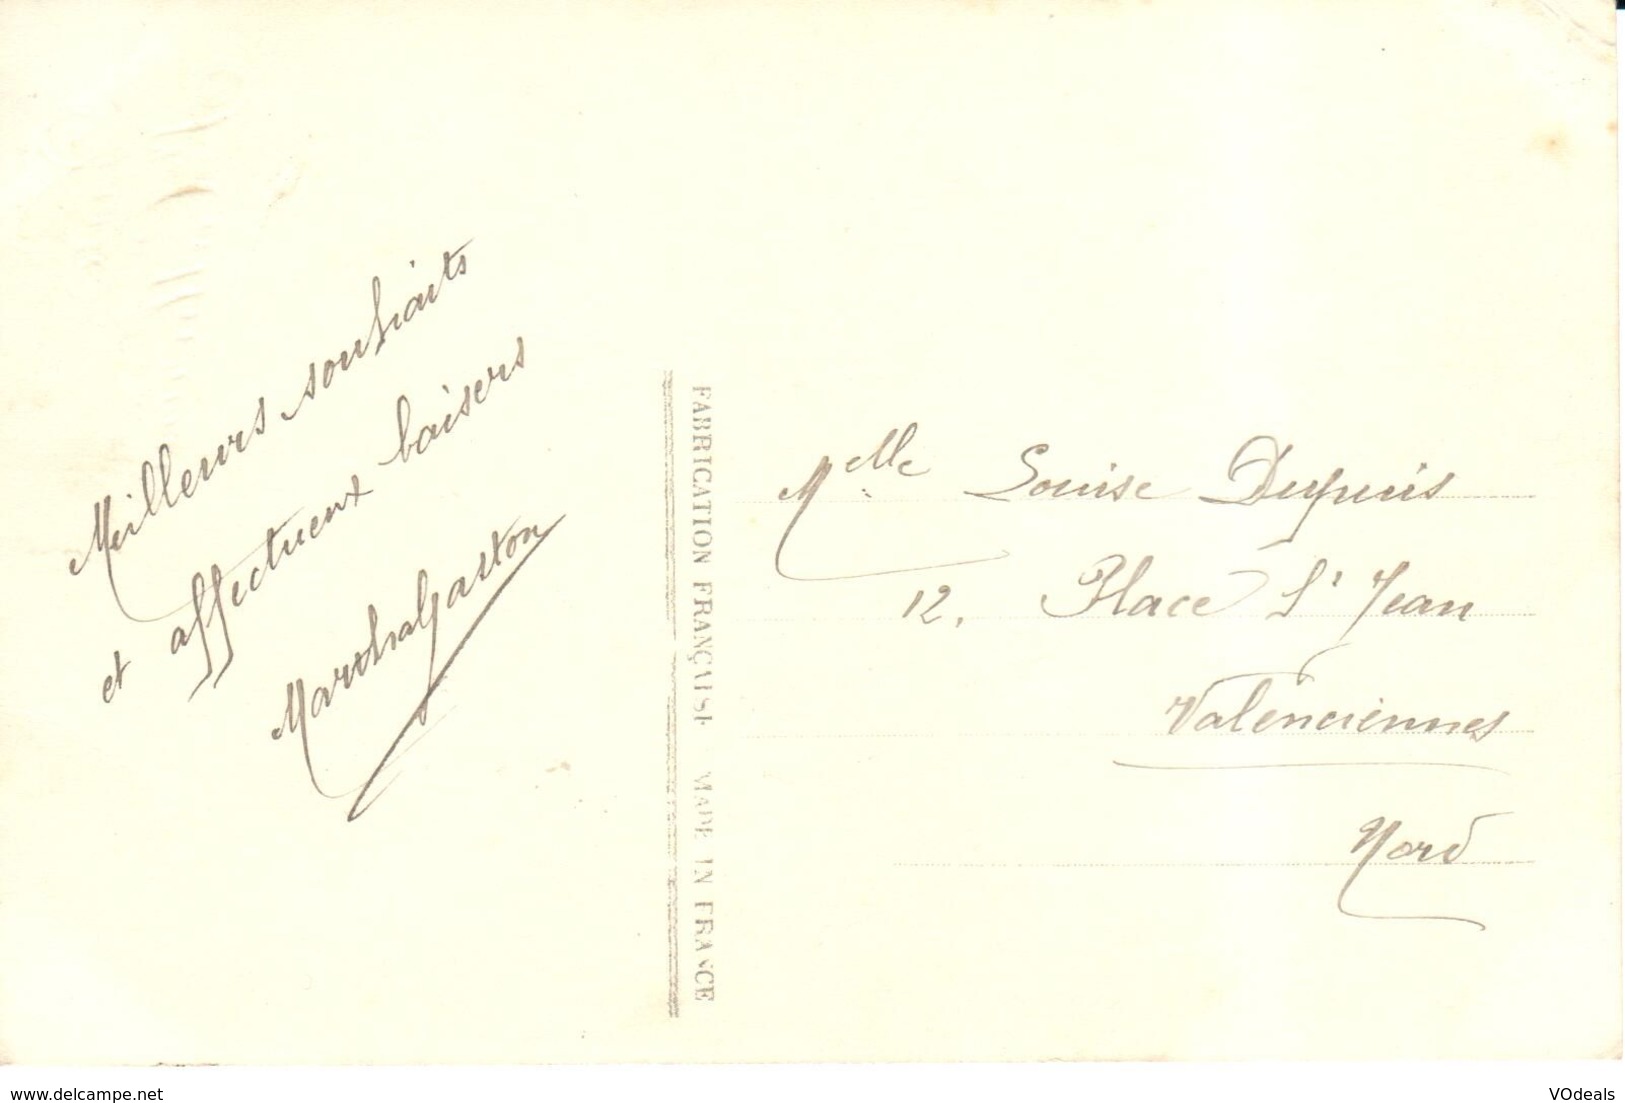 Meilleurs souhaits
et affectueux baisers
MarthaGaston
FABRICATION FRANÇAISE MADE IN FRANCE
Melle Louise Dupuis
12, Place St Jean
Valenciennes
Nord
www.delcampe.net
VOdeals